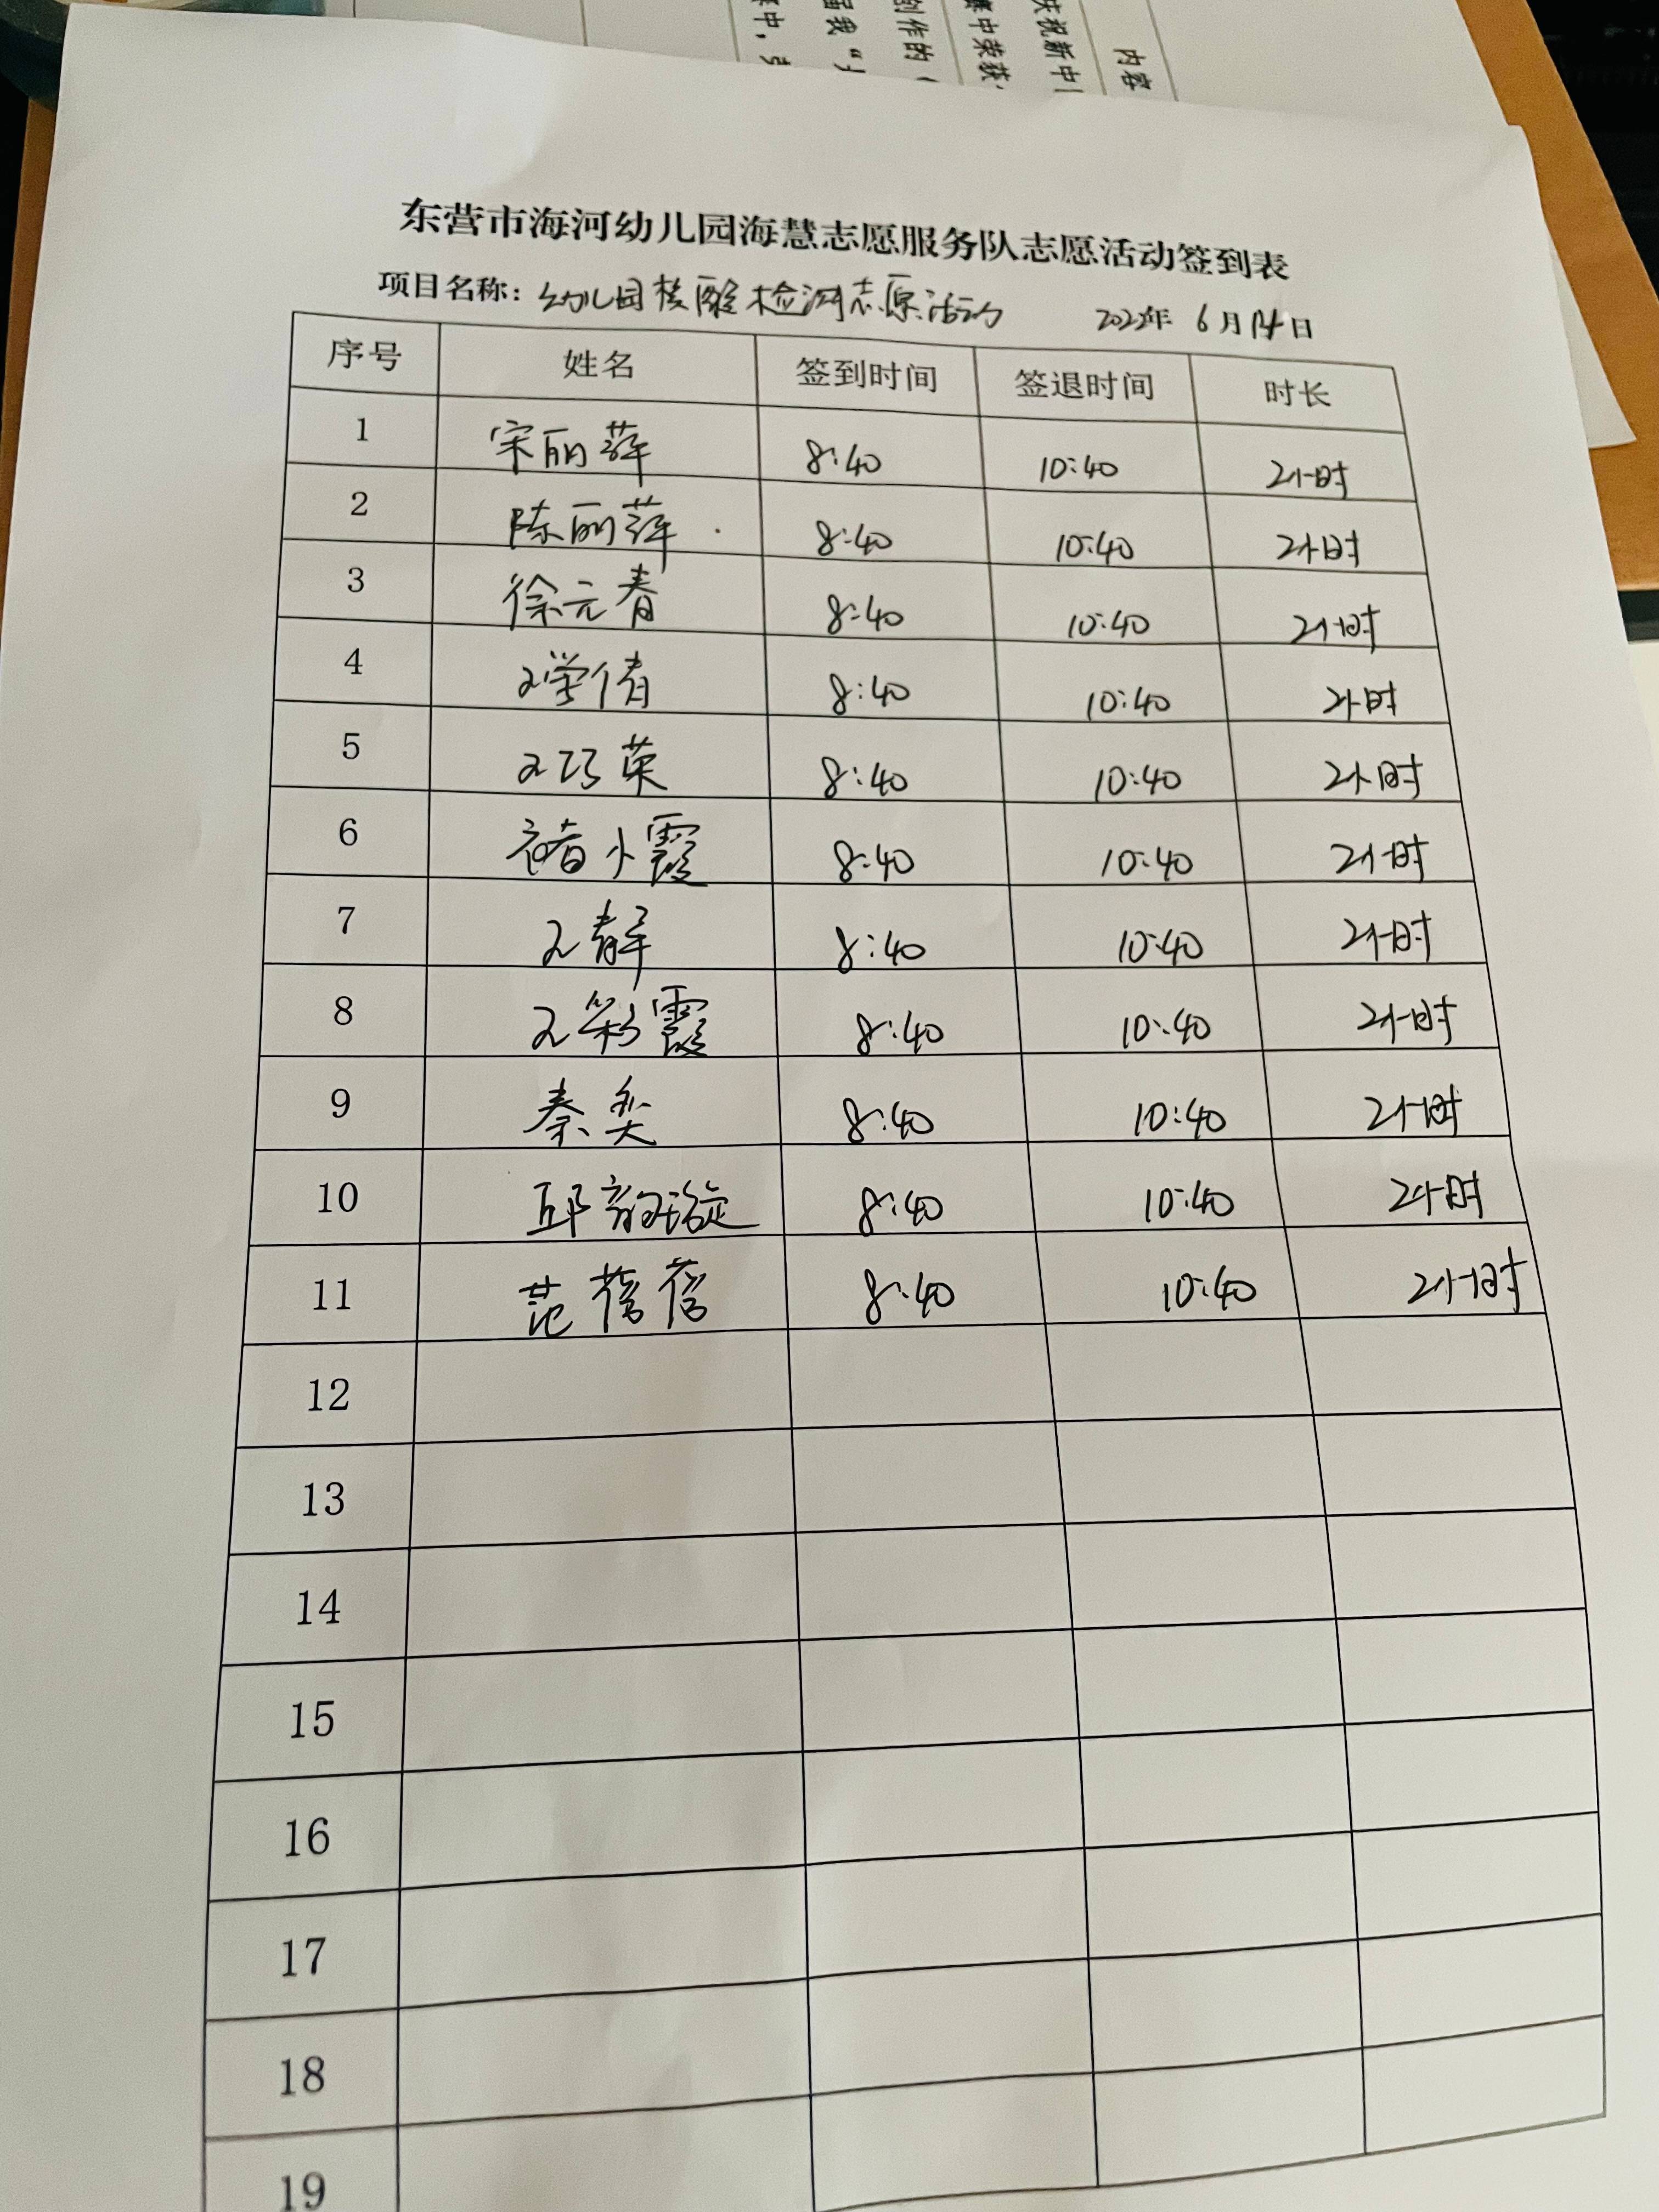 内容
庆祝新中
集中荣获
创作的
届我“
集中，
东营市海河幼儿园海慧志愿服务队志愿活动签到表
项目名称：幼儿园核酸检测志愿活动 2022年 6月14日
序号 姓名 签到时间 签退时间 时长
1 宋丽萍 8:40 10:40 2小时
2 陈丽萍 8:40 10:40 2小时
3 徐元春 8:40 10:40 2小时
4 王学倩 8:40 10:40 2小时
5 王巧英 8:40 10:40 2小时
6 褚小霞 8:40 10:40 2小时
7 王静 8:40 10:40 2小时
8 王彩霞 8:40 10:40 2小时
9 秦奕 8:40 10:40 2小时
10 邱 8:40 10:40 2小时
11 范蓓蓓 8:40 10:40 2小时
12
13
14
15
16
17
18
19